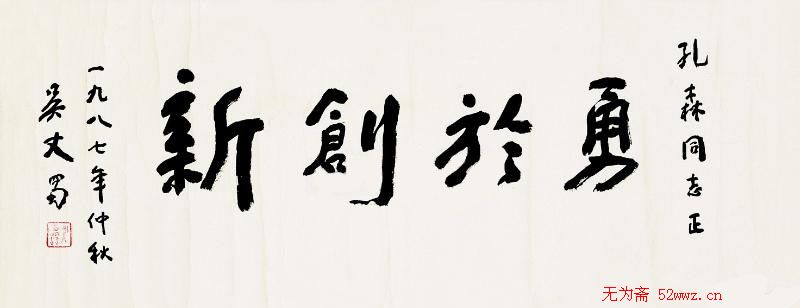 孔森同志正
勇於創新
一九八七年仲秋
吴丈蜀
无为斋 52wwz.cn